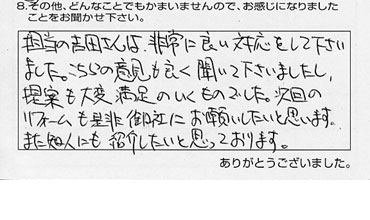 8.その他、どんなことでもかまいませんので、お感じになりました
ことをお聞かせ下さい。
担当の吉田さんは、非常に良い対応をして下さい
ました。こちらの意見も良く聞いて下さいましたし、
提案も大変満足のいくものでした。次回の
リフォームも是非御社にお願いしたいと思います。
また知人にも紹介したいと思っております。
ありがとうございました。